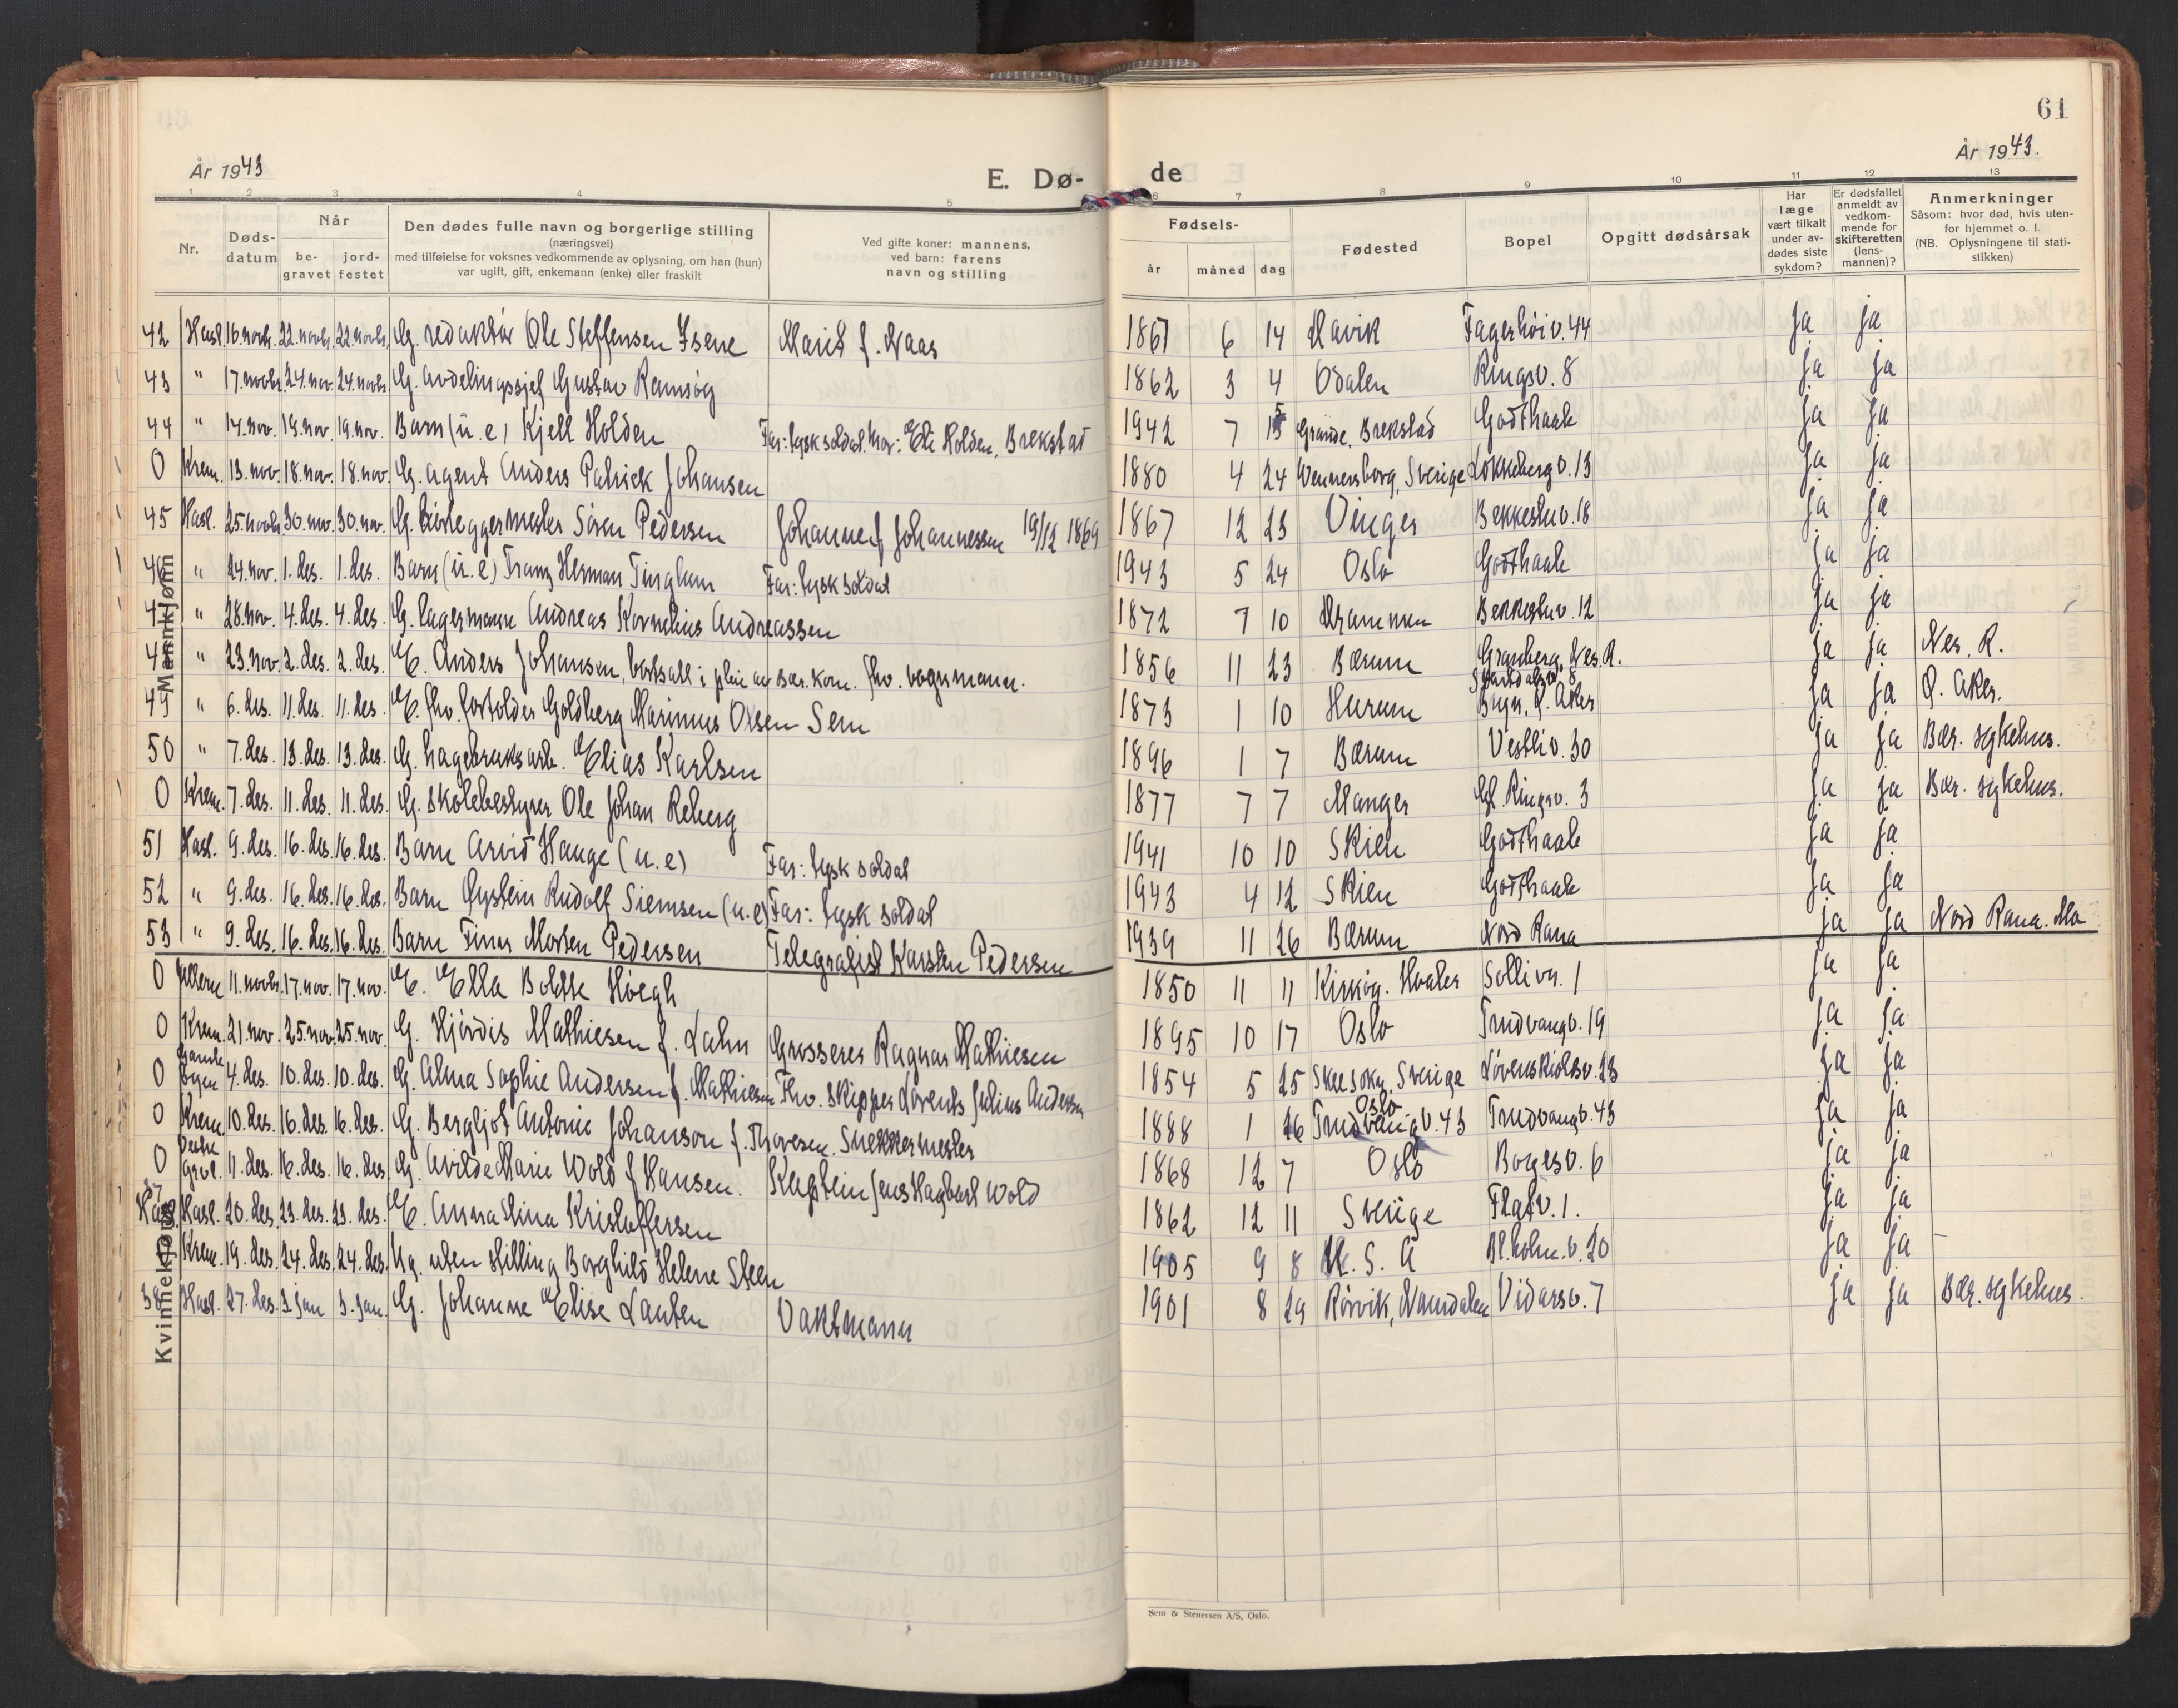 61
År 1943
År 1943.
E. Dø-
de
1 2 3 4 5 6 7 8 9 10 11 12 13
Nr.
Døds-
datum
Når
be-
gravet
jord-
festet
Den dødes fulle navn og borgerlige stilling
(næringsvei)
med tilføielse for voksnes vedkommende av oplysning, om han (hun)
var ugift, gift, enkemann (enke) eller fraskilt
Ved gifte koner: mannens,
ved barn: farens
navn og stilling
Fødsels-
år
måned
dag
Fødested
Bopel
Opgitt dødsårsak
Har
læge
vært tilkalt
under av-
dødes siste
sykdom?
Er dødsfallet
anmeldt av
vedkom-
mende for
skifteretten
(lens-
mannen)?
Anmerkninger
Såsom: hvor død, hvis uten-
for hjemmet o. l.
(NB. Oplysningene til stati-
stikken)
Mannkjønn
42 Hasl. 16. novbr. 22. novbr. 22. novbr. G. redaktør Ole Steffensen Isene Marit f. Naas 1861 6 14 Mavik Fagerhöiv. 44 ja ja
43 " 17. novbr. 24. nov. 24. novbr. G. avdelingssjef Gustav Ramsög 1862 3 4 Odalen Ringsv. 8 ja ja
44 " 14. nov. 19. nov. 19. nov. Barn (u. e) Kjell Holden Far: tysk soldat. Mor: Eli Holden, Brekstad 1942 7 Grande, Brekstad Godthaab ja ja
0 Krem. 13. nov. 18. nov. 18. nov. G. agent Anders Patrick Johansen 1880 4 24 Wennersborg, Sverige Løkkeberg v. 13 ja ja
45 Hasl. 25. novbr. 30. nov. 30. nov. G. Søren Pedersen Johanne f. Johannessen 19/12 1869 1867 12 23 Vinger Bekkestuv. 18 ja ja
46 " 24. nov. 1. des. 1. des. Barn (u. e) Franz Herman Tingham Far: tysk soldat 1943 5 24 Oslo Godthaab ja ja
47 " 28. nov. 4. des. 4. des. G. lagermann Andreas Kornelius Andreassen 1872 7 10 Drammen Bekkestuv. 12 ja ja
48 " 23. nov. 2. des. 2. des. E. Anders Johansen, bortsatt i pleie av Bær. kom. fhv. vognmann. 1856 11 23 Bærum Granberg, Nes. R. ja ja Nes. R.
49 " 6. des. 11. des. 11. des. E. fhv. forvolder Goldberg Marinius Olsen Sem 1873 1 10 Hurum Ø. Aker ja ja Ø. Aker.
50 " 7. des. 13. des. 13. des. G. hagebruksarb. Elias Karlsen 1896 1 7 Bærum Vestliv. 30 ja ja Bær. sykehus.
0 Krem. 7. des. 11. des. 11. des. G. skolebestyrer Ole Johan Reberg 1877 7 7 Manger Gl. Ringsv. 3 ja ja Bær. sykehus.
51 Hasl. 9. des. 16. des. 16. des. Barn Arvid Hauge (u. e) Far: tysk soldat 1941 10 10 Skien Godthaab ja ja
52 " 9. des. 16. des. 16. des. Barn Øystein Rudolf Siemsen (u. e) Far: tysk soldat 1943 4 12 Skien Godthaab ja ja
53 " 9. des. 16. des. 16. des. Barn Finar Morten Pedersen Telegrafist Karsten Pedersen 1939 11 26 Bærum Nord Rana ja ja Nord Rana. Mo
Kvinnekjønn
0 Ullern 11. novbr. 17. nov. 17. nov. E. Ella Boldte Høegh 1850 11 11 Kirkøy. Hvaler Sollivn. 1 ja ja
0 Krem. 21. nov. 25. nov. 25. nov. G. Hjördis Mathiesen f. Lahn Grosserer Ragnar Mathiesen 1895 10 17 Oslo Trudvangv. 19 ja ja
0 Gamle byen 4. des. 10. des. 10. des. G. Alma Sophie Andersen f. Mathiesen Fhv. skipper Lorents Julius Andersen 1854 5 25 Skee sokn, Sverige Løvenskioldsv. 23 ja ja
0 Krem. 10. des. 16. des. 16. des. G. Bergljot Antonie Johanson f. Thoresen. Snekkermester 1888 1 26 Oslo Trudvangv. 43 Trudvangv. 43 ja ja
0 Vestre grvl. 11. des. 16. des. 16. des. G. Avilde Marie Wold f Hansen. Kaptein Jens Hagbart Wold 1868 12 7 Oslo Bogesv. 6 ja ja
37 Hasl. Hasl. 20. des. 23. des. 23. des. E. Anna Stina Kristoffersen 1862 12 11 Sverige Flatv. 1. ja ja
Krem. 19. des. 24. des. 24. des. Ug. uten stilling Borghild Helene Steen 1905 9 8 U. S. A Bl.holm. v. 20 ja ja
38 Hasl. 27. des. 3. jan 3. jan. G. Johanne Elise Lauten Vaktmann 1901 8 29 Rørvik, Namdalen Vidarsv. 7 ja ja Bær. sykehus.
Sem & Stenersen A/S, Oslo.